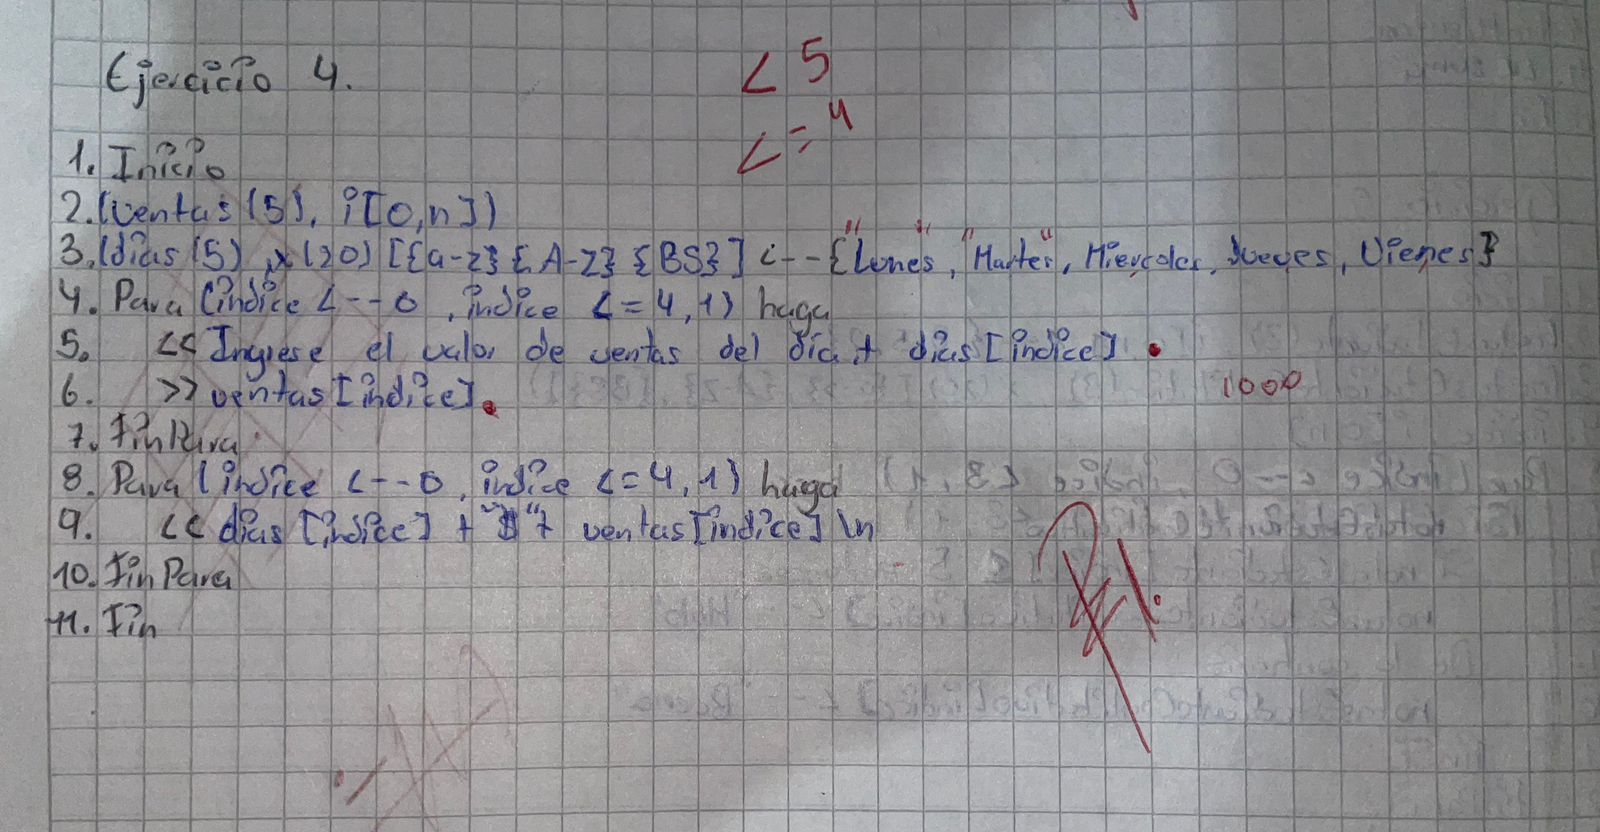 Ejercicio 4.
< 5
<= 4
1. Inicio
2. (ventas (5), i [0,n])
3. (dias (5), x (20) [{a-z} {A-Z} {BS}] <-- {"Lunes", "Martes", Miercoles, Jueves, Viernes}
4. Para (indice <-- 0, indice <= 4, 1) haga
5. << Ingrese el valor de ventas del dia + dias [indice].
6. >> ventas [indice].
1000
7. FinPara.
8. Para (indice <-- 0, indice <= 4, 1) haga
9. << dias [indice] + "$" + ventas [indice] \n
10. FinPara
11. Fin